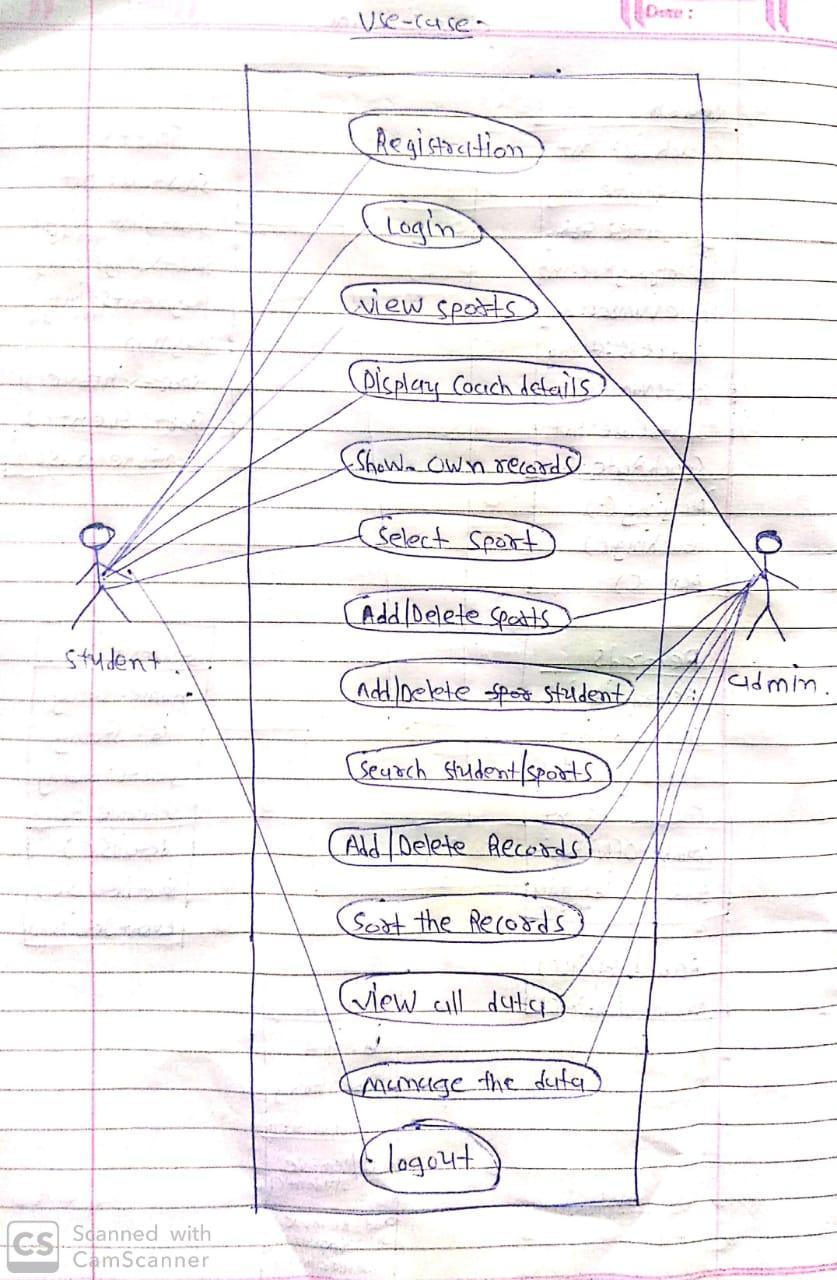 Use-case-
Date :
Registration
Login
view sports
Display Coach details
Show own records
Select sport
Add/Delete sports
student
Add/Delete spor student
admin.
Search student/sports
Add/Delete Records
Sort the Records
view all data
manage the data
logout
CS Scanned with
CamScanner